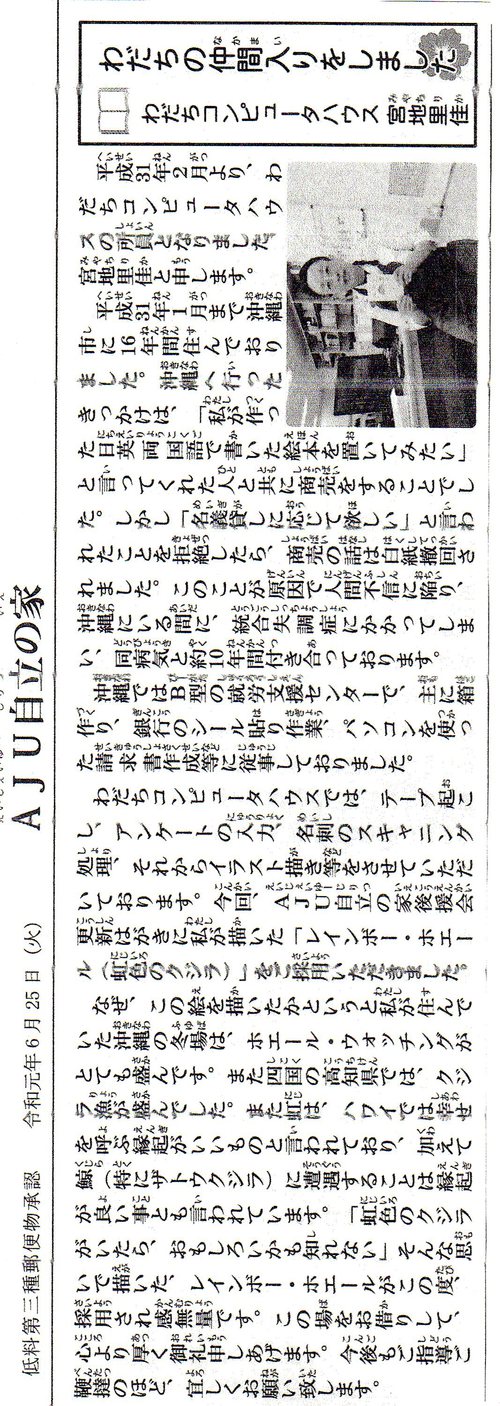 低料第三種郵便物承認　令和元年6月25日（火）
AJU自立の家
わだちの仲間入りをしました
わだちコンピュータハウス 宮地里佳
平成31年2月より、わ
だちコンピュータハウ
スの所員となりました
宮地里佳と申します。
平成31年1月まで沖縄
市に16年間住んでおり
ました。沖縄へ行った
きっかけは、「私が作っ
た日英両国語で書いた絵本を置いてみたい」
と言ってくれた人と共に商売をすることでし
た。しかし「名義貸しに応じて欲しい」と言わ
れたことを拒絶したら、商売の話は白紙撤回さ
れました。このことが原因で人間不信に陥り、
沖縄にいる間に、統合失調症にかかってしま
い、同病気と約10年間付き合っております。
沖縄ではB型の就労支援センターで、主に箱
作り、銀行のシール貼り作業、パソコンを使っ
た請求書作成等に従事しておりました。
わだちコンピュータハウスでは、テープ起こ
し、アンケートの入力、名刺のスキャニング
処理、それからイラスト描き等をさせていただ
いております。今回、AJU自立の家後援会
更新はがきに私が描いた「レインボー・ホエー
ル（虹色のクジラ）」をご採用いただきました。
なぜ、この絵を描いたかというと私が住んで
いた沖縄の冬場は、ホエール・ウォッチングが
とても盛んです。また四国の高知県では、クジ
ラ漁が盛んでした。また虹は、ハワイでは幸せ
を呼ぶ縁起がいいものと言われており、加えて
鯨（特にザトウクジラ）に遭遇することは縁起
が良い事とも言われています。「虹色のクジラ
がいたら、おもしろいかも知れない」そんな思
いで描いた、レインボー・ホエールがこの度、
採用され感無量です。この場をお借りして、
心より厚く御礼申しあげます。今後もご指導ご
鞭撻のほど、宜しくお願い致します。